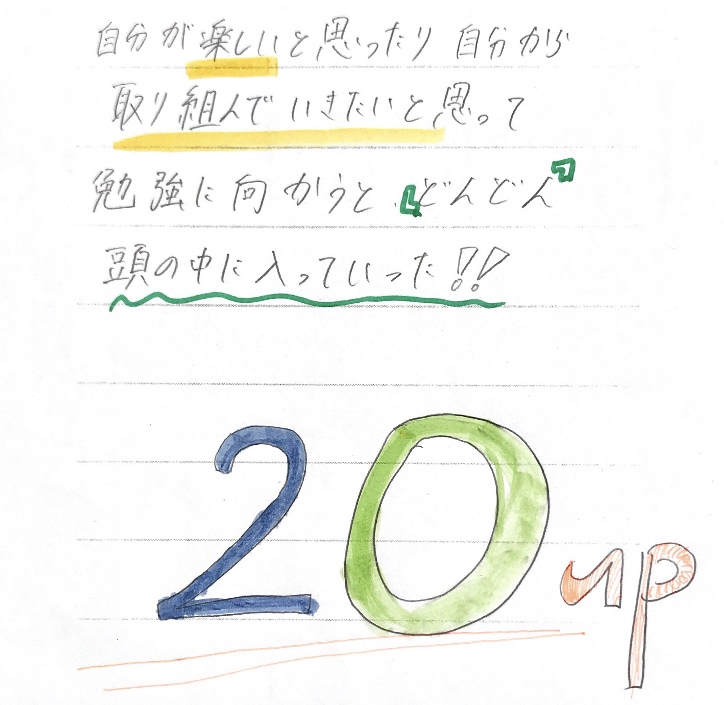 自分が楽しいと思ったり 自分から
取り組んでいきたいと思って
勉強に向かうと「どんどん」
頭の中に入っていった!!
20 up